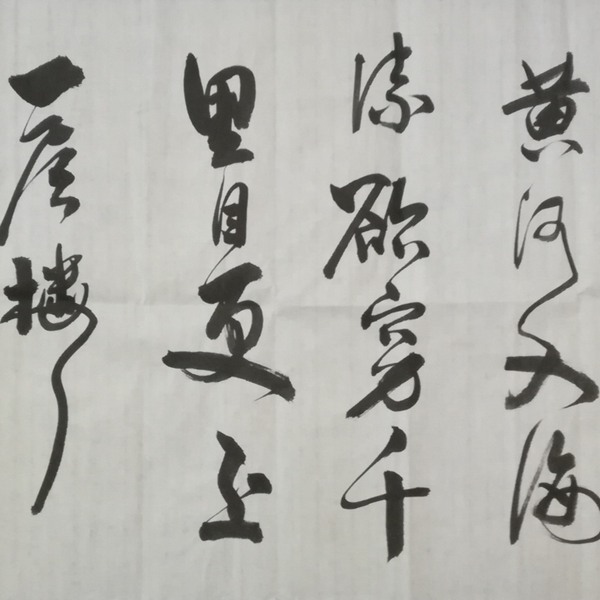 黄河入海
流欲穷千
里目更上
一层楼